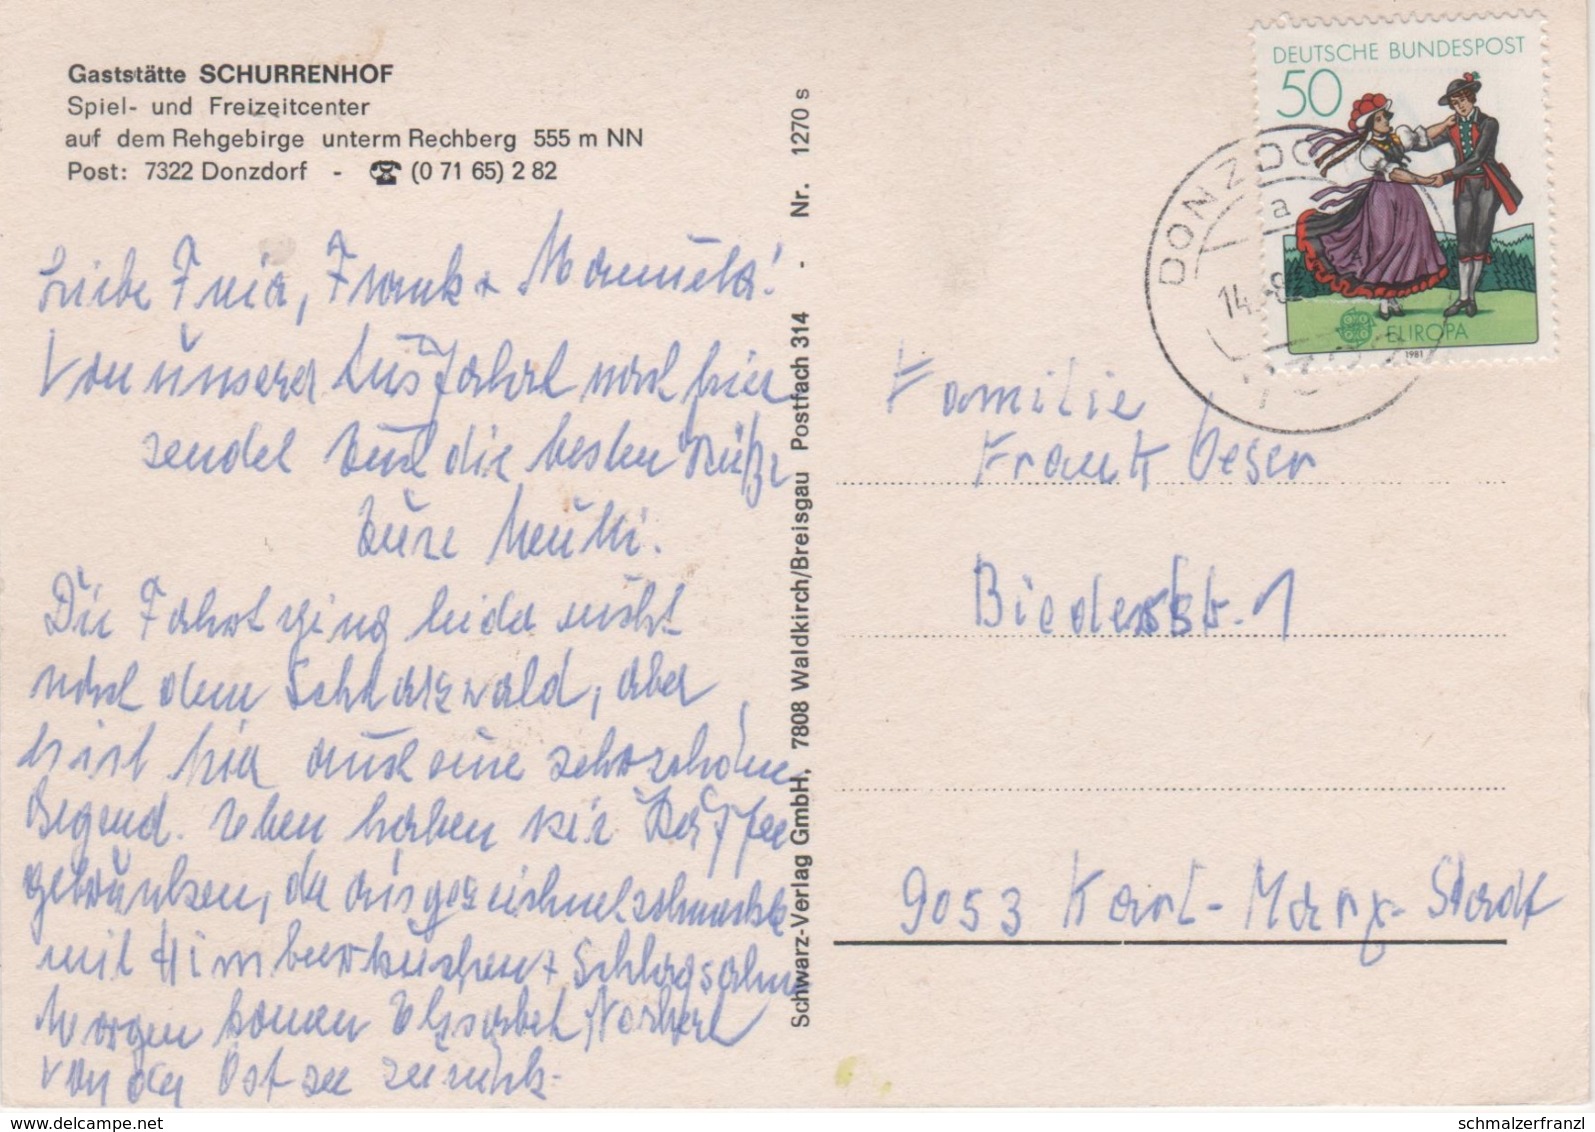 Gaststätte SCHURRENHOF
Spiel- und Freizeitcenter
auf dem Rehgebirge unterm Rechberg 555 m NN
Post: 7322 Donzdorf - ☎ (0 71 65) 2 82
Liebe Freia, Frank + Manuela!
Von unserer Ausfahrt nach hier
sendet Euch die besten Grüße
Eure Mutti.
Die Fahrt ging leider nicht
nach dem Schwarzwald, aber
hist hier auch eine sehr schöne
Gegend. Eben haben wir Kaffee
getrunken, der ausgezeichnet schmeckte
mit Himbeerkuchen + Schlagsahne
Morgen komen Elisabeth, Norbert
von der Ostsee zurück.
Schwarz-Verlag GmbH, 7808 Waldkirch/Breisgau Postfach 314 - Nr. 1270 s
DEUTSCHE BUNDESPOST
50
EUROPA
1981
DONZDO
a
14.
Familie
Frank Oeser
Biederstr. 1
9053 Karl-Marx-Stadt
delcampe.net
schmalzerfranzl